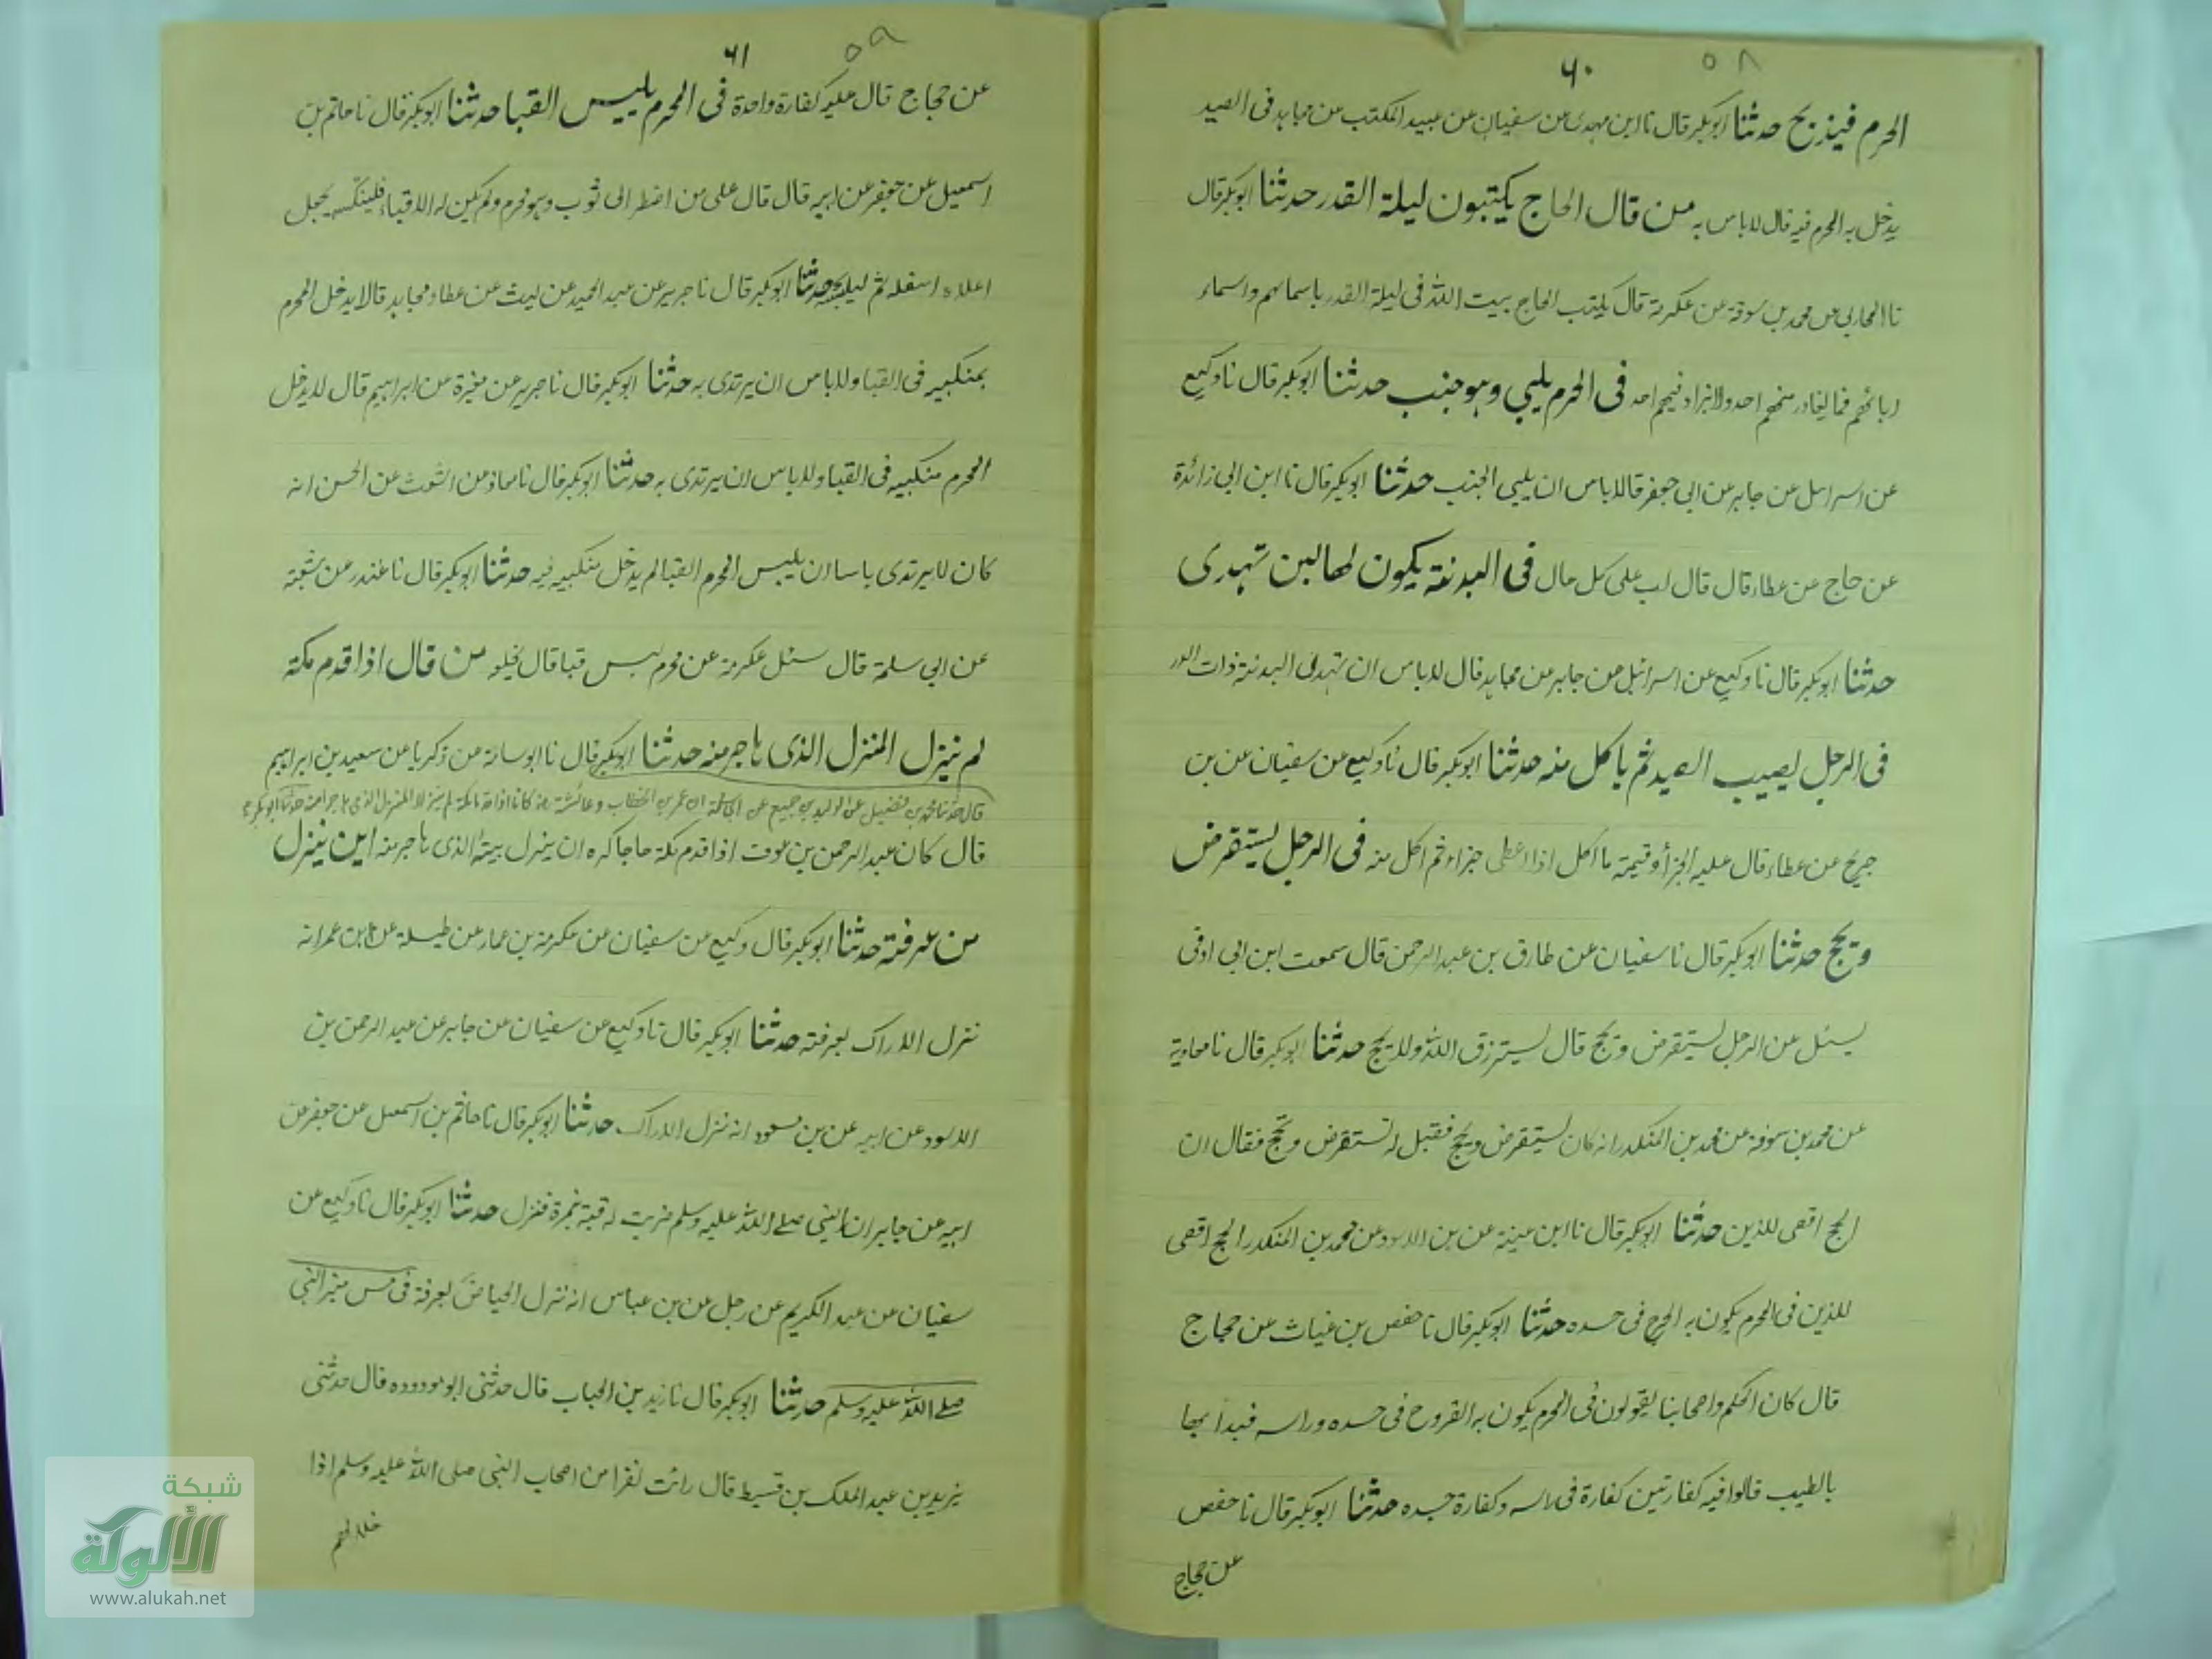 ٥٨
٦٠
الحرم فيذبح حدثنا ابوبكر قال نا ابن مهدى عن سفيان عن عبيد المكتب عن مجاهد فى الصيد
يدخل به الحرم فيه قال لا باس به من قال الحاج يكتبون ليلة القدر حدثنا ابوبكر قال
نا المحاربى عن محمد بن سوقة عن عكرمة قال يكتب الحاج بيت الله فى ليلة القدر باسمائهم واسماء
ابائهم فما يغادر منهم احد ولا يزاد فيهم احد فى الحرم يلبي وهو جنب حدثنا ابوبكر قال نا وكيع
عن اسرائيل عن جابر عن ابى جعفر قال لا باس ان يلبى الجنب حدثنا ابوبكر قال نا ابن ابى زائدة
عن حجاج عن عطاء قال قال لب على كل حال فى البدنة يكون لها لبن تهدى
حدثنا ابوبكر قال نا وكيع عن اسرائيل عن جابر عن مجاهد قال لا باس ان تهدى البدنة ذات الدر
فى الرجل يصيب الصيد ثم ياكل منه حدثنا ابوبكر قال نا وكيع عن سفيان عن بن
جريج عن عطاء قال عليه الجزا وقيمة ما اكل اذا اعطى جزاءه ثم اكل منه فى الرجل يستقرض
ويحج حدثنا ابوبكر قال نا سفيان عن طارق بن عبد الرحمن قال سمعت ابن ابى اوفى
يسئل عن الرجل يستقرض ويحج قال يسترزق الله ولا يحج حدثنا ابوبكر قال نا معاوية
عن محمد بن سوقة عن محمد بن المنكدر انه كان يستقرض ويحج فقيل له تستقرض وتحج فقال ان
الحج اقضى للدين حدثنا ابوبكر قال نا ابن عيينة عن بن الاسود عن محمد بن المنكدر الحج اقضى
للدين فى المحرم يكون به الجرح فى جسده حدثنا ابوبكر قال نا حفص بن غياث عن حجاج
قال كان الحكم واصحابنا يقولون فى المحرم يكون به القروح فى جسده وراسه فبدا بها
بالطيب قالوا فيه كفارتين كفارة فى راسه وكفارة جسده حدثنا ابوبكر قال نا حفص
عن حجاج
٥٩
٦١
عن حجاج قال عليه كفارة واحدة فى المحرم يلبس القبا حدثنا ابوبكر قال نا حاتم بن
اسمعيل عن جعفر عن ابيه قال قال على من اضطر الى ثوب وهو محرم ولم يكن له الا قباء فلينكسه يجعل
اعلاه اسفله ثم ليلبسه حدثنا ابوبكر قال نا جرير عن عبد الحميد عن ليث عن عطاء ومجاهد قالا يدخل المحرم
بمنكبيه فى القبا ولا باس ان يرتدى به حدثنا ابوبكر قال نا جرير عن مغيرة عن ابراهيم قال لا يدخل
المحرم منكبيه فى القبا ولا باس ان يرتدى به حدثنا ابوبكر قال نا معاذ عن اشعث عن الحسن انه
كان لا يرتدى باسا ان يلبس المحرم القبا لم يدخل منكبيه فيه حدثنا ابوبكر قال نا غندر عن شعبة
عن ابى سلمة قال سئل عكرمة عن محرم لبس قبا قال يخلعه من قال اذا قدم مكة
لم ينزل المنزل الذى هاجر منه حدثنا ابوبكر قال نا ابو سامة عن زكريا عن سعيد بن ابراهيم
قال حدثنا محمد بن فضيل عن الوليد بن جميع عن ابى سلمة ان عمر بن الخطاب وعائشة كانا اذا قدما مكة لم ينزلا المنزل الذى هاجرا منه حدثنا ابوبكر
قال كان عبد الرحمن بن عوف اذا قدم مكة حاجا كره ان ينزل بيته الذى هاجر منه اين ينزل
من عرفة حدثنا ابوبكر قال وكيع عن سفيان عن عكرمة بن عمار عن طيسلة عن ابن عمر انه
نزل الاراك بعرفة حدثنا ابوبكر قال نا وكيع عن سفيان عن جابر عن عبد الرحمن بن
الاسود عن ابيه عن بن مسعود انه نزل الاراك حدثنا ابوبكر قال نا حاتم بن اسمعيل عن جعفر عن
ابيه عن جابر ان النبى صلے الله عليه وسلم ضربت له قبة بنمرة فنزل حدثنا ابوبكر قال نا وكيع عن
سفيان عن عبد الكريم عن رجل عن بن عباس انه نزل الحياض بعرفة فى مس منبر النبى
صلے الله عليه وسلم حدثنا ابوبكر قال نا زيد بن الحباب قال حدثنى ابو مودوده قال حدثنى
يزيد بن عبد الملك بن قسيط قال رائت نفرا من اصحاب النبى صلى الله عليه وسلم اذا
خلا لهم
شبكة
الألوكة
www.alukah.net